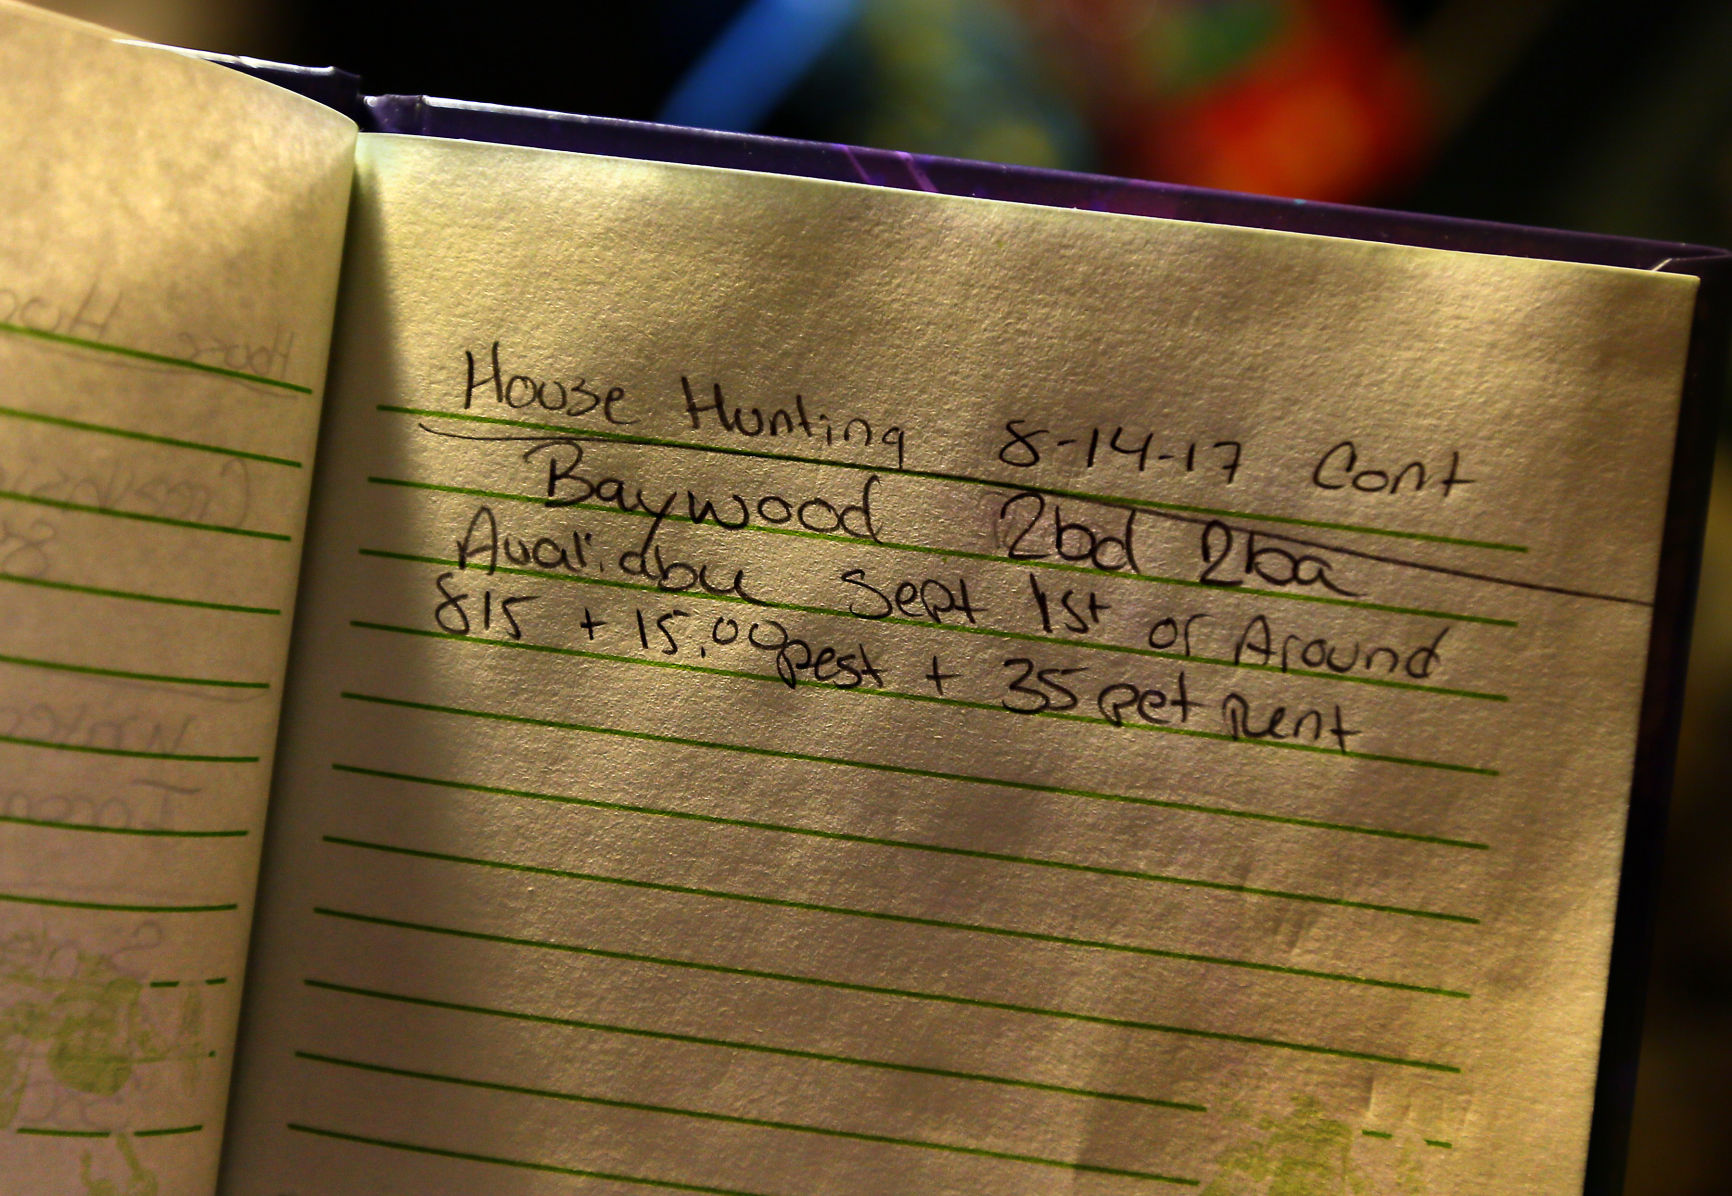 House Hunting 8-14-17 Cont
Baywood 2bd 2ba
Avali.dbu Sept 1st or Around
815 + 15.00 pest + 35 pet Rent